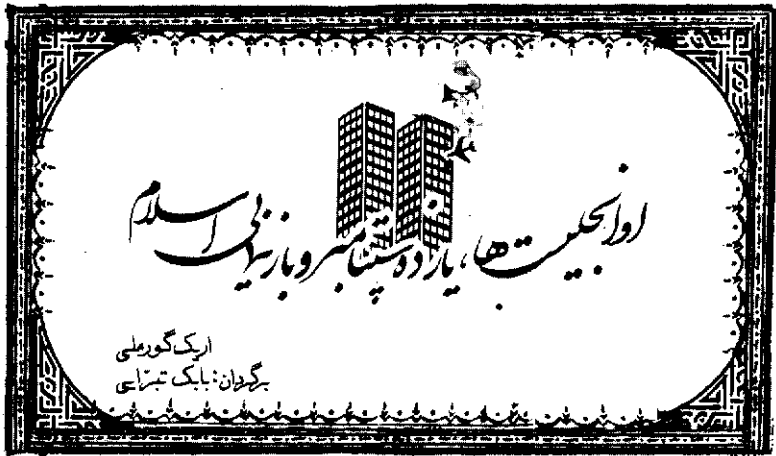 اوانجلیست‌ها، یازده سپتامبر و بازنمایی اسلام
اریک گورملی
برگردان: بابک تبرایی